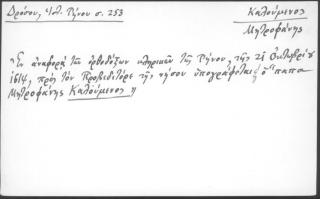 Δρόσου, Ἱστ. Τήνου σ. 253
Καλούμενος
Μητροφάνης
"Ἐν ἀναφορᾷ τῶν ὀρθοδόξων κληρικῶν τῆς Τήνου, τῆς 21 Ὀκτωβρίου
1614, πρὸς τὸν Προβεδιτόρε τῆς νήσου ὑπογράφεται ὁ "παπα
Μητροφάνης Καλούμενος"